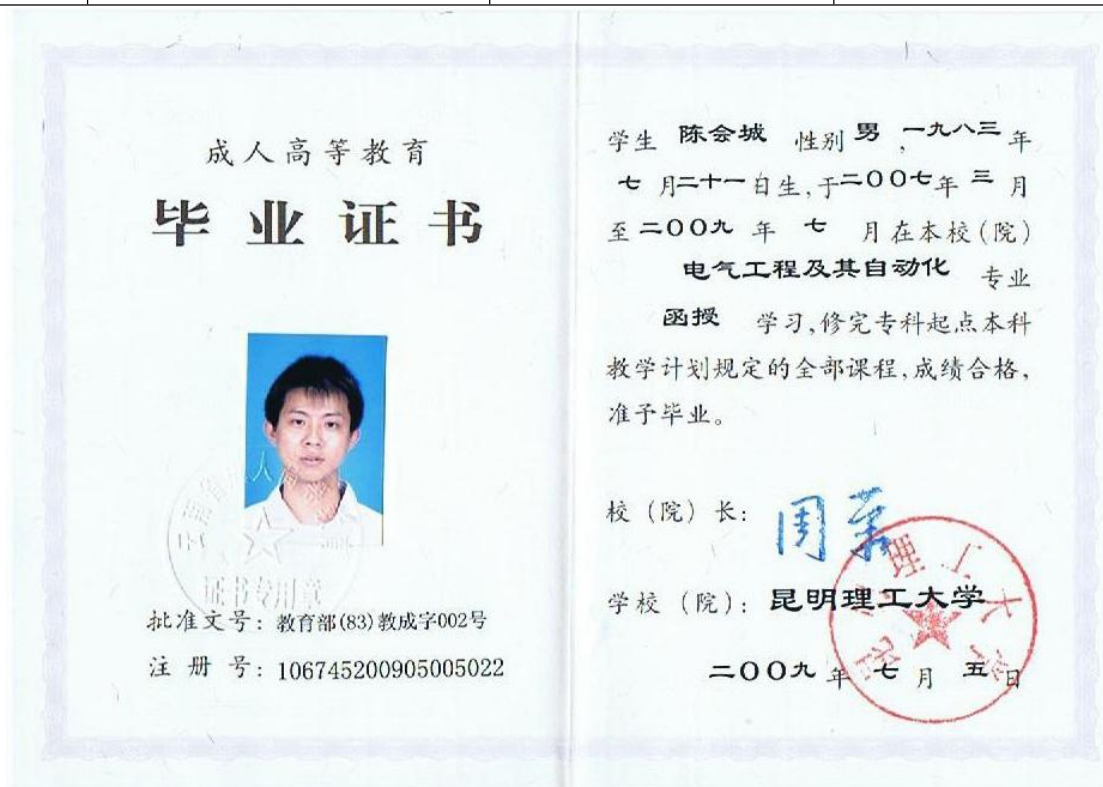 成人高等教育
毕业证书
证书专用章
批准文号：教育部(83)教成字002号
注册号：106745200905005022
学生 陈会城 性别 男，一九八三年
七月二十一日生，于二〇〇七年三月
至二〇〇九年七月在本校(院)
电气工程及其自动化 专业
函授 学习，修完专科起点本科
教学计划规定的全部课程，成绩合格，
准予毕业。
校（院）长：周荣
学校（院）：昆明理工大学
二〇〇九年七月五日